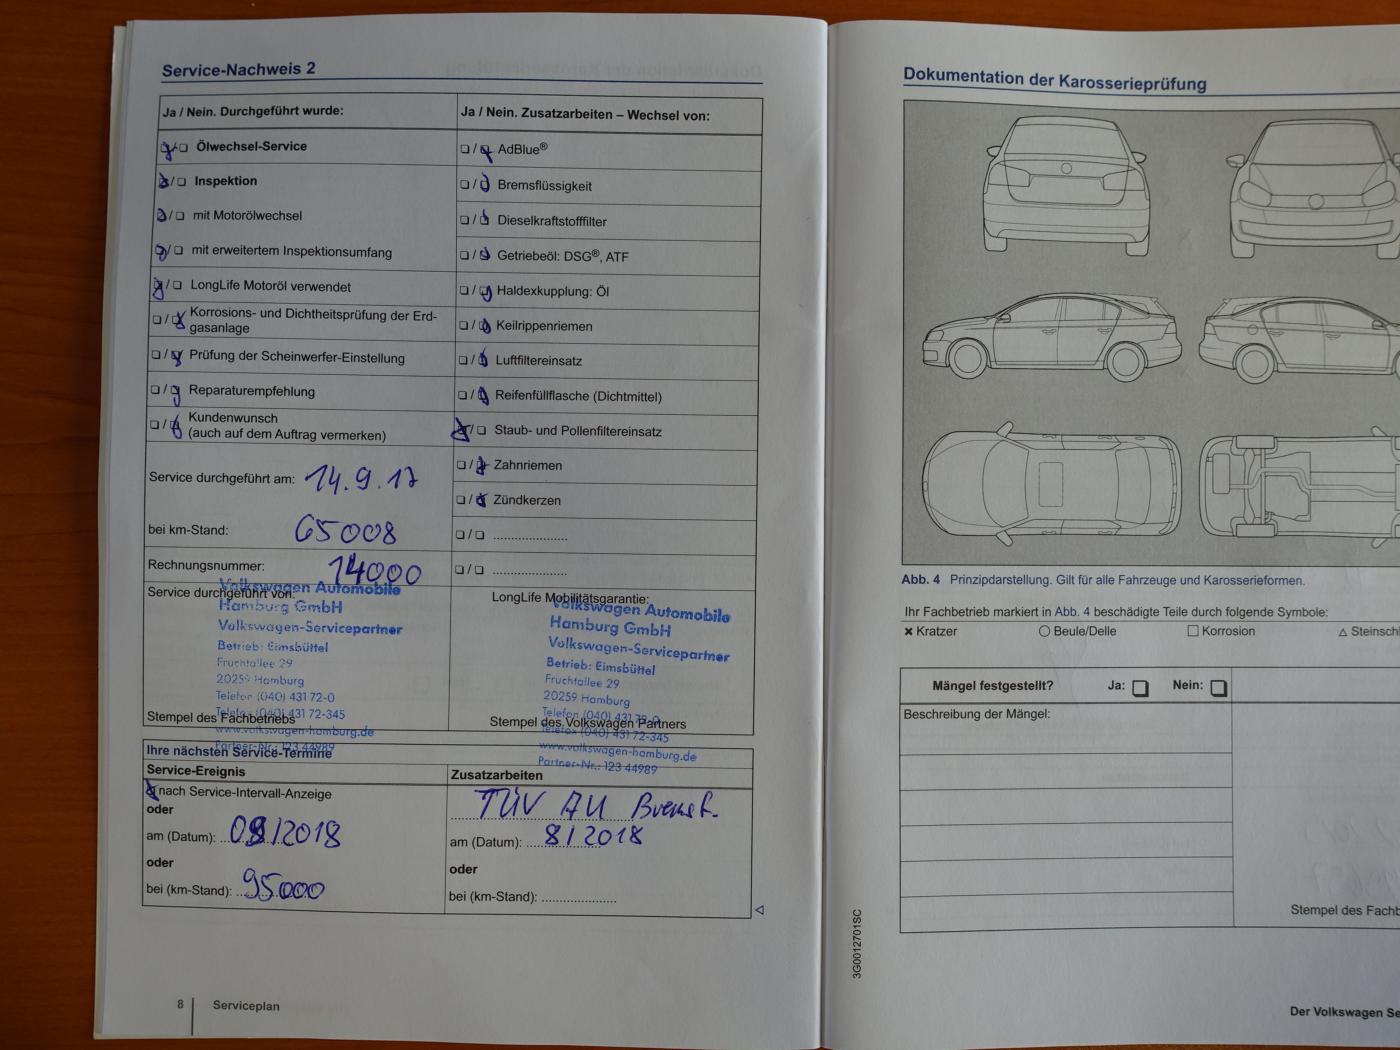 Service-Nachweis 2
Ja / Nein. Durchgeführt wurde:
Ölwechsel-Service
Inspektion
mit Motorölwechsel
mit erweitertem Inspektionsumfang
LongLife Motoröl verwendet
Korrosions- und Dichtheitsprüfung der Erd-
gasanlage
Prüfung der Scheinwerfer-Einstellung
Reparaturempfehlung
Kundenwunsch
(auch auf dem Auftrag vermerken)
Service durchgeführt am: 14.9.17
bei km-Stand: 65008
Rechnungsnummer: 14000
Service durchgeführt von:
Volkswagen Automobile
Hamburg GmbH
Volkswagen-Servicepartner
Betrieb: Eimsbüttel
Fruchtallee 29
20259 Hamburg
Telefon (040) 431 72-0
Telefax (040) 431 72-345
www.volkswagen-hamburg.de
Partner-Nr.: 123 44989
Stempel des Fachbetriebs
Ja / Nein. Zusatzarbeiten – Wechsel von:
AdBlue®
Bremsflüssigkeit
Dieselkraftstofffilter
Getriebeöl: DSG®, ATF
Haldexkupplung: Öl
Keilrippenriemen
Luftfiltereinsatz
Reifenfüllflasche (Dichtmittel)
Staub- und Pollenfiltereinsatz
Zahnriemen
Zündkerzen
LongLife Mobilitätsgarantie:
Volkswagen Automobile
Hamburg GmbH
Volkswagen-Servicepartner
Betrieb: Eimsbüttel
Fruchtallee 29
20259 Hamburg
Telefon (040) 431 72-0
Telefax (040) 431 72-345
www.volkswagen-hamburg.de
Partner-Nr.: 123 44989
Stempel des Volkswagen Partners
Ihre nächsten Service-Termine
Service-Ereignis
nach Service-Intervall-Anzeige
oder
am (Datum): 09/2018
oder
bei (km-Stand): 95000
Zusatzarbeiten
TÜV AU Bremsf.
am (Datum): 8/2018
oder
bei (km-Stand):
8 Serviceplan
Dokumentation der Karosserieprüfung
Abb. 4 Prinzipdarstellung. Gilt für alle Fahrzeuge und Karosserieformen.
Ihr Fachbetrieb markiert in Abb. 4 beschädigte Teile durch folgende Symbole:
Kratzer Beule/Delle Korrosion Steinschl
Mängel festgestellt? Ja: Nein:
Beschreibung der Mängel:
Stempel des Fachb
3G0012701SC
Der Volkswagen Se